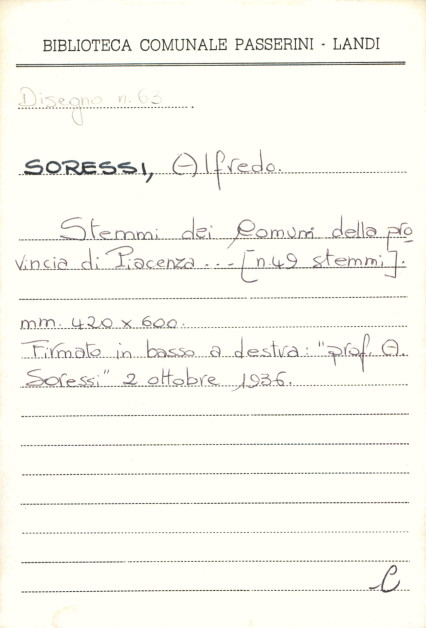 BIBLIOTECA COMUNALE PASSERINI - LANDI
Disegno n. 63
SORESSI, Alfredo.
Stemmi dei Comuni della pro
vincia di Piacenza ... [n. 49 stemmi].
mm. 420 x 600.
Firmato in basso a destra: "prof. A.
Soressi" 2 ottobre 1936.
C